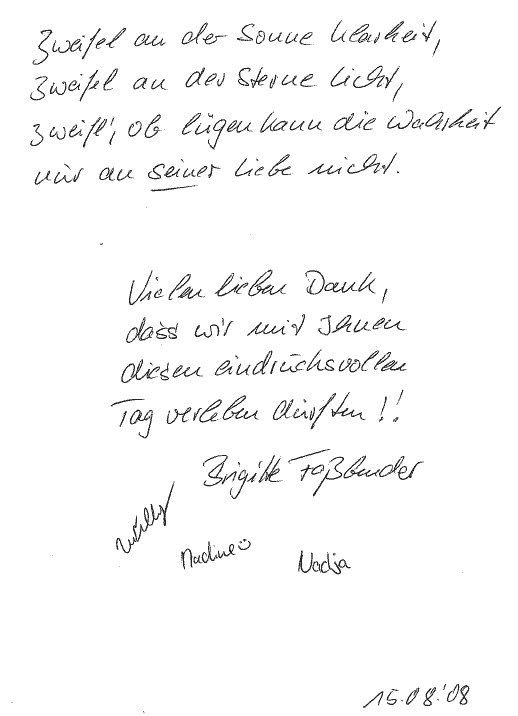 Zweifel an der Sonne Klarheit,
Zweifel an der Sterne Licht,
Zweifl', ob lügen kann die Wahrheit
nur an seiner Liebe nicht.
Vielen lieben Dank,
dass wir mit Ihnen
diesen eindrucksvollen
Tag verleben durften!!
Brigitte Faßbender
Willy
Nadine
Nadja
15.08.'08